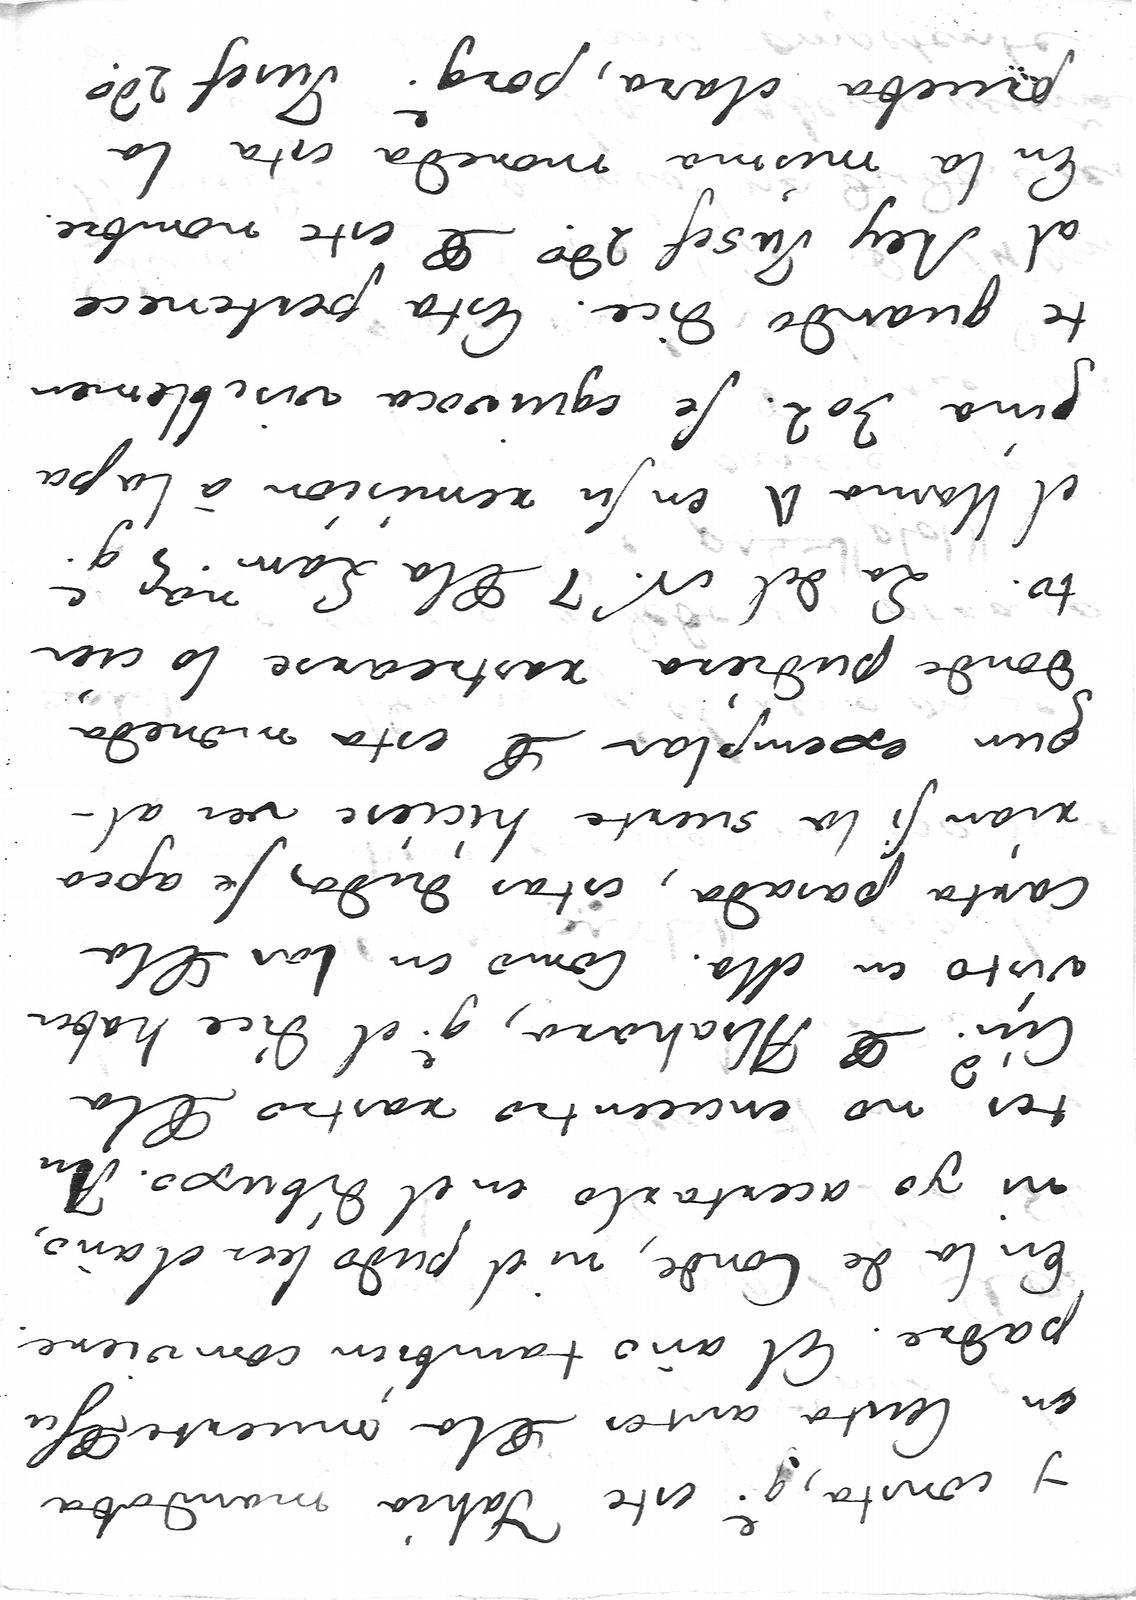 y consta, q.e este Yahia mandaba
en Ceuta antes dela muerte de su
padre. El año tambien conviene.
En la de Conde, ni el pudo leer el año,
ni yo acertarlo en el dibuxo. An
tes no encuentro rastro dela
Cir.a de Alrahaxo, q.e el dice haber
visto en ella. Como en las dela
carta pasada, estas dudas se apea
rian si la suerte hiciese ver al-
gun exemplar de esta moneda,
donde pudiera rastrearse lo cier
to. La del N.º 7 dela Lam. 5 q.e
el llama A en su remision à la pa
gina 302. se equivoca visiblemen
te quando dice. Esta pertenece
al Rey Jusef 2do. de este nombre.
En la misma moneda esta la
prueba clara, porq.e Jusef 2do.